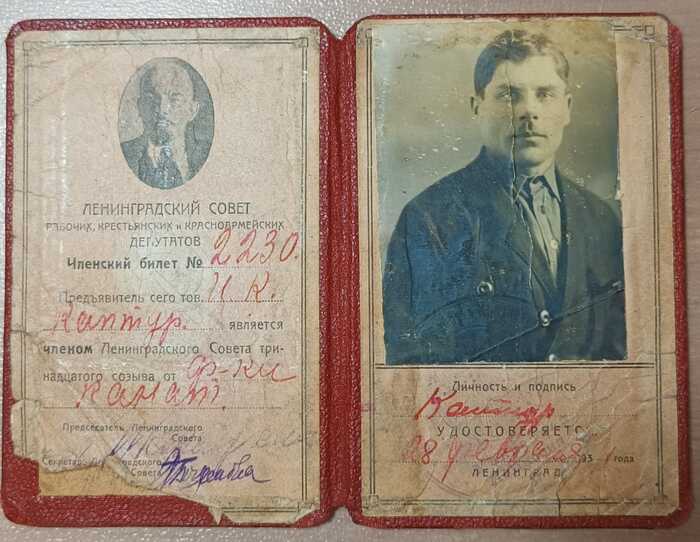 ЛЕНИНГРАДСКИЙ СОВЕТ
РАБОЧИХ, КРЕСТЬЯНСКИХ и КРАСНОАРМЕЙСКИХ
ДЕПУТАТОВ
Членский билет № 2230.
Предъявитель сего тов. И. К.
Каптур. является
членом Ленинградского Совета три-
надцатого созыва от ф-ки
Канат.
Председатель Ленинградского
Совета
Секретарь Ленинградского
Совета
Личность и подпись
Каптур
УДОСТОВЕРЯЕТС
28 февраля 193 года
ЛЕНИНГРАД